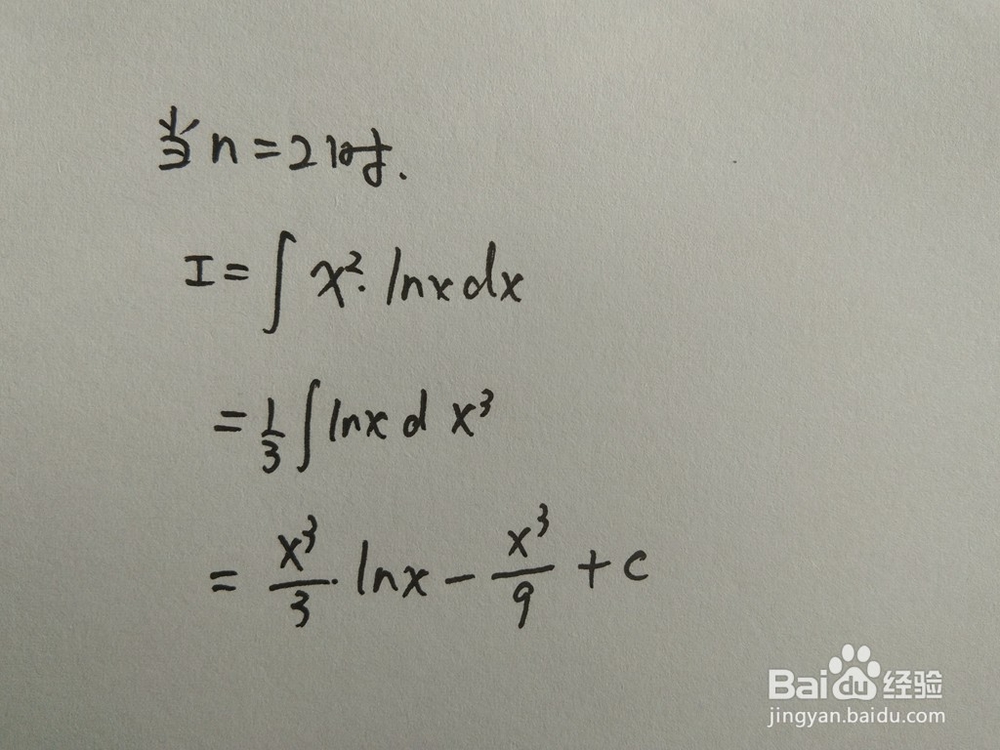 当n=2时.
I=∫x²·lnxdx
=1/3∫lnxdx³
=x³/3·lnx-x³/9+c
Bai du 经验
jingyan.baidu.com